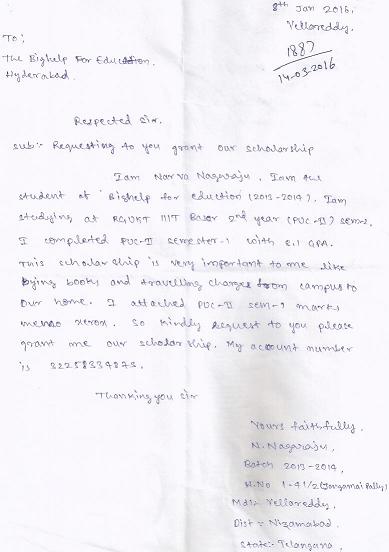 8th Jan 2016,
Yellareddy.
1887
14-03-2016
To;
The Bighelp For Education.
Hyderabad.
Respected Sir.
sub:- Requesting to you grant our scholarship
Iam Narva Nagaraju. Iam the
student of Bighelp for eduction (2013-2014). Iam
studying at RGUKT IIIT Basar 2nd year (PUC-II) sem-2.
I completed PUC-II semester-1 with 8.1 GPA.
This scholarship is very important to me like
bying books and travelling charges from campus to
our home. I attached PUC-II sem-1 marks
memo xerox. So kindly request to you please
grant me our scholarship. My account number
is
Thanking you sir
Yours faithfully,
N. Nagaraju,
Batch 2013-2014,
H.No 1-41/2 (Jangamai Pally)
Mdl:- Yellareddy,
Dist = Nizamabad,
State:- Telangana,